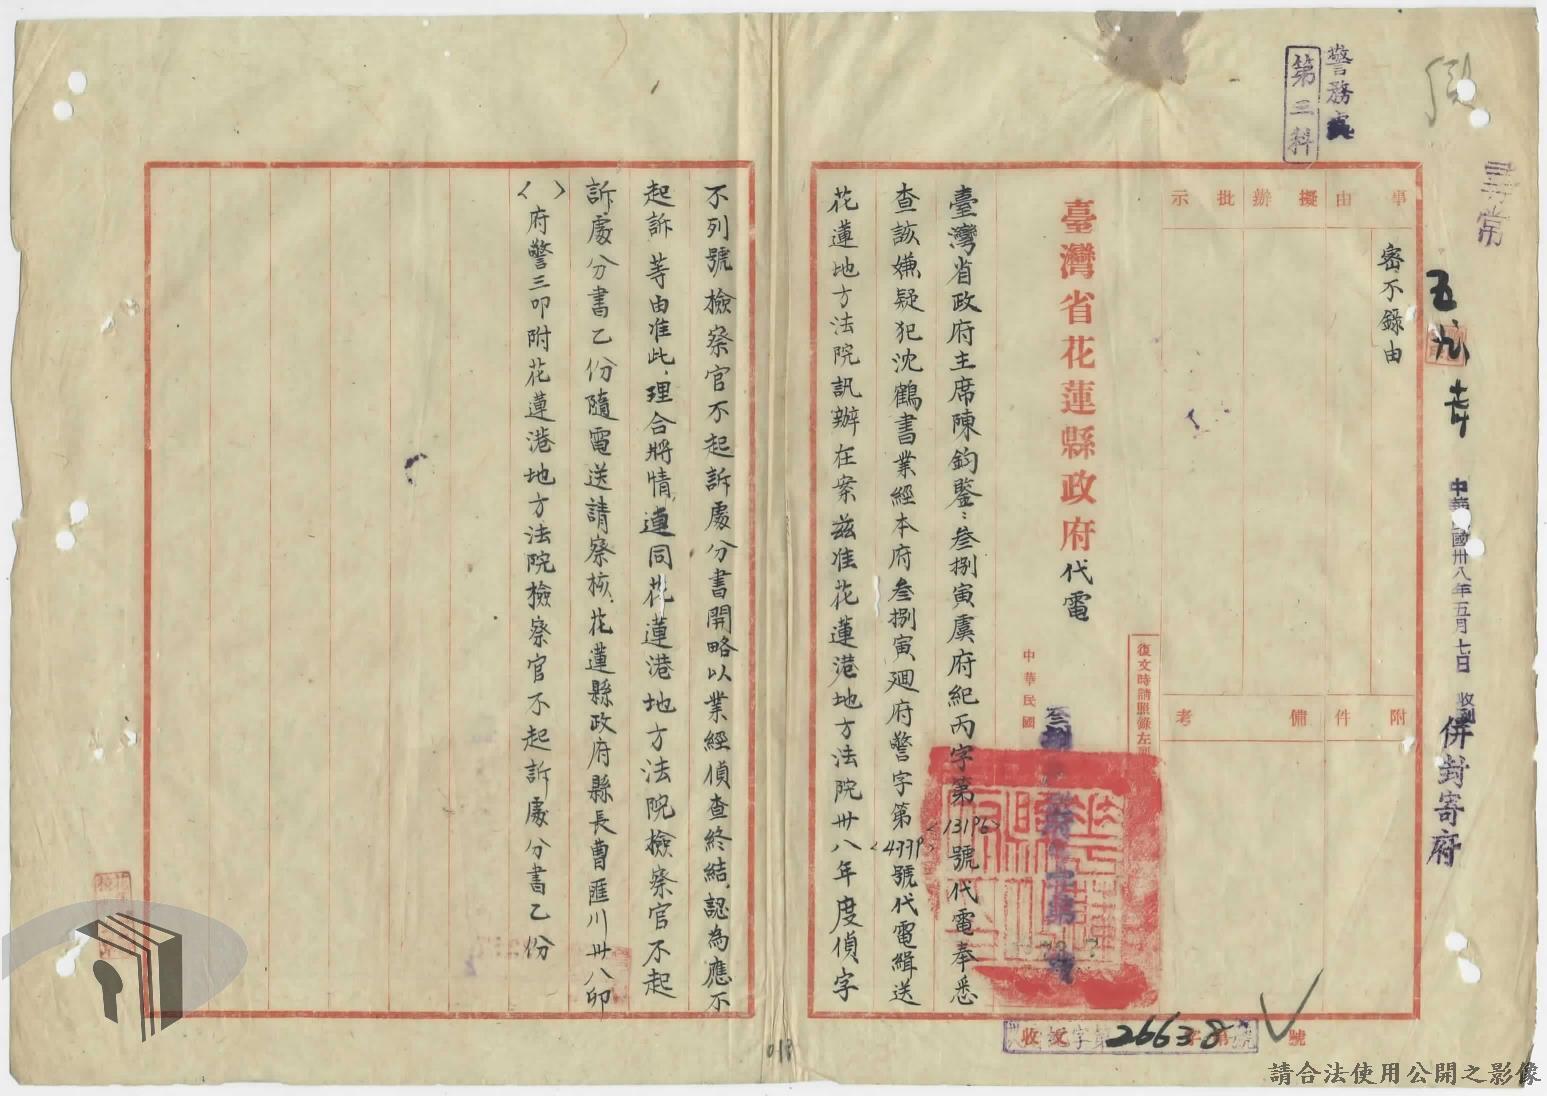 警務處
第三科
尋常
五
中華民國卅八年五月七日 收到
併封寄府
事由
擬辦
批示
密不錄由
附件
備考
臺灣省花蓮縣政府代電
復文時請照錄左列
中華民國
臺灣省政府主席陳鈞鑒：叁捌寅虞府紀丙字第(13196)號代電奉悉
查該嫌疑犯沈鶴書業經本府叁捌寅廻府警字第號代電緝送
花蓮地方法院訊辦在案茲准花蓮港地方法院卅八年度偵字
不列號檢察官不起訴處分書開略以業經偵查終結、認為應不
起訴等由准此、理合將情、連同花蓮港地方法院檢察官不起
訴處分書乙份隨電送請察核、花蓮縣政府縣長曹匯川卅八卯
( )府警三叩附花蓮港地方法院檢察官不起訴處分書乙份
收文字第26638號
018
請合法使用公開之影像